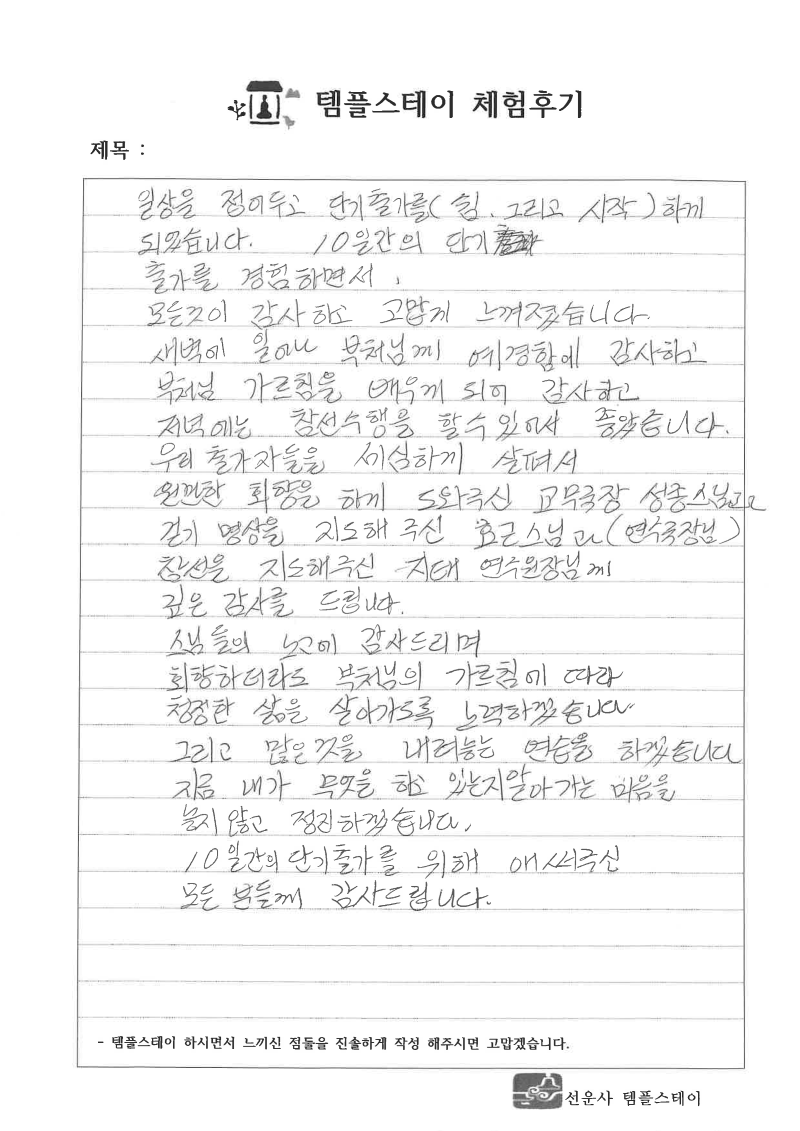 템플스테이 체험후기
제목 :
일상을 접어두고 단기출가를( 쉼, 그리고 시작 )하게
되었습니다. 10일간의 단기
출가를 경험하면서,
모든것이 감사하고 고맙게 느껴졌습니다.
새벽에 일어나 부처님께 예경함에 감사하고
부처님 가르침을 배우게 되어 감사하고
저녁에는 참선수행을 할수 있어서 좋았습니다.
우리 출가자들을 세심하게 살펴서
원만한 회향을 하게 도와주신 교무국장 성종스님과
걷기 명상을 지도해 주신 효근스님과(연수국장님)
참선을 지도해주신 지태 연수원장님께
깊은 감사를 드립니다.
스님들의 노고에 감사드리며
회향하더라도 부처님의 가르침에 따라
청정한 삶을 살아가도록 노력하겠습니다.
그리고 많은것을 내려놓는 연습을 하겠습니다
지금 내가 무엇을 하고 있는지알아가는 마음을
놓지 않고 정진하겠습니다.
10일간의 단기출가를 위해 애써주신
모든 분들께 감사드립니다.
- 템플스테이 하시면서 느끼신 점들을 진솔하게 작성 해주시면 고맙겠습니다.
선운사 템플스테이